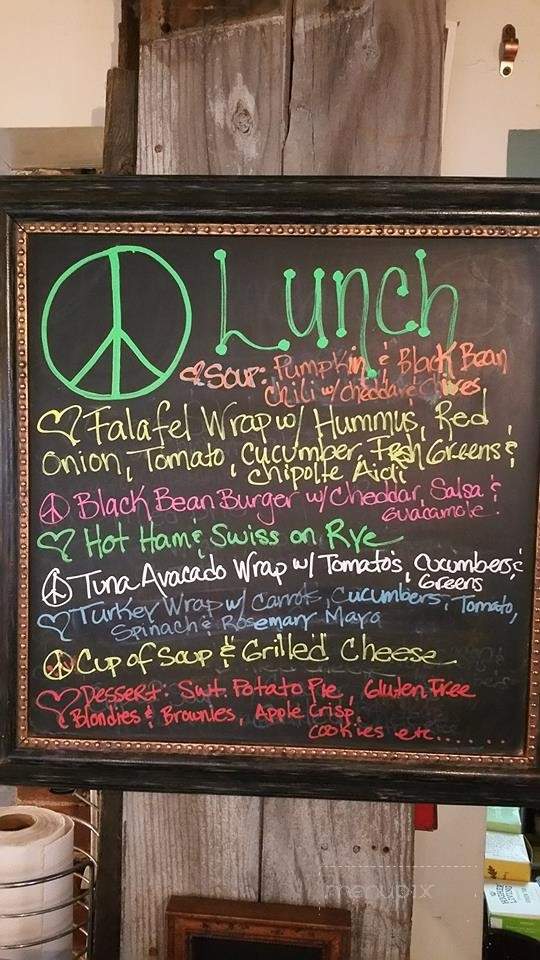 Lunch
Soup: Pumpkin & Black Bean
Chili w/ cheddar & Chives
Falafel Wrap w/ Hummus, Red
Onion, Tomato, Cucumber, Fresh Greens &
Chipolte Aioli
Black Bean Burger w/ Cheddar, Salsa &
Guacamole.
Hot Ham & Swiss on Rye
Tuna Avacado Wrap w/ Tomato's, Cucumbers &
Greens
Turkey Wrap w/ Carrots, Cucumbers, Tomato,
Spinach & Rosemary Mayo
Cup of Soup & Grilled Cheese
Dessert: Swt. Potato Pie, Gluten Free
Blondies & Brownies, Apple Crisp,
Cookies etc.......
menupix